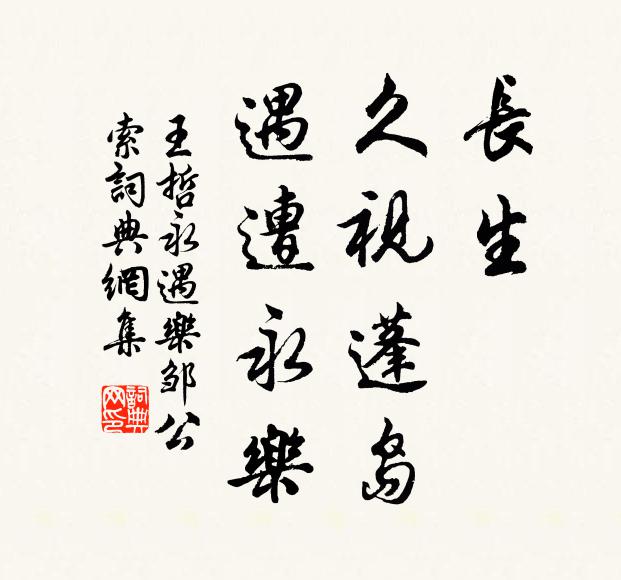 長生
久視蓬島
遇遭永樂
王哲永遇樂邹公
索詞典網集
詞典
网印